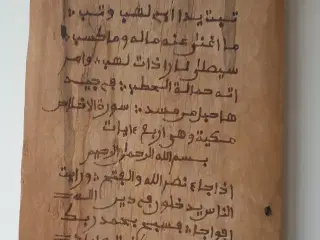 تبت يدا ابى لهب وتب ∴
ما اغنى عنه ماله وما كسب ∴
سيصلى نارا ذات لهب ∴ وامر
اته حمالة الحطب ∴ في جيد
ها حبل من مسد ∴ سورة الاخلاص
مكية وهي اربع ءايات
بسم الله الرحمن الرحيم
اذا جاء نصر الله والفتح ∴ ورايت
الناس يدخلون في دين الله
افواجا ∴ فسبح بحمد ربك